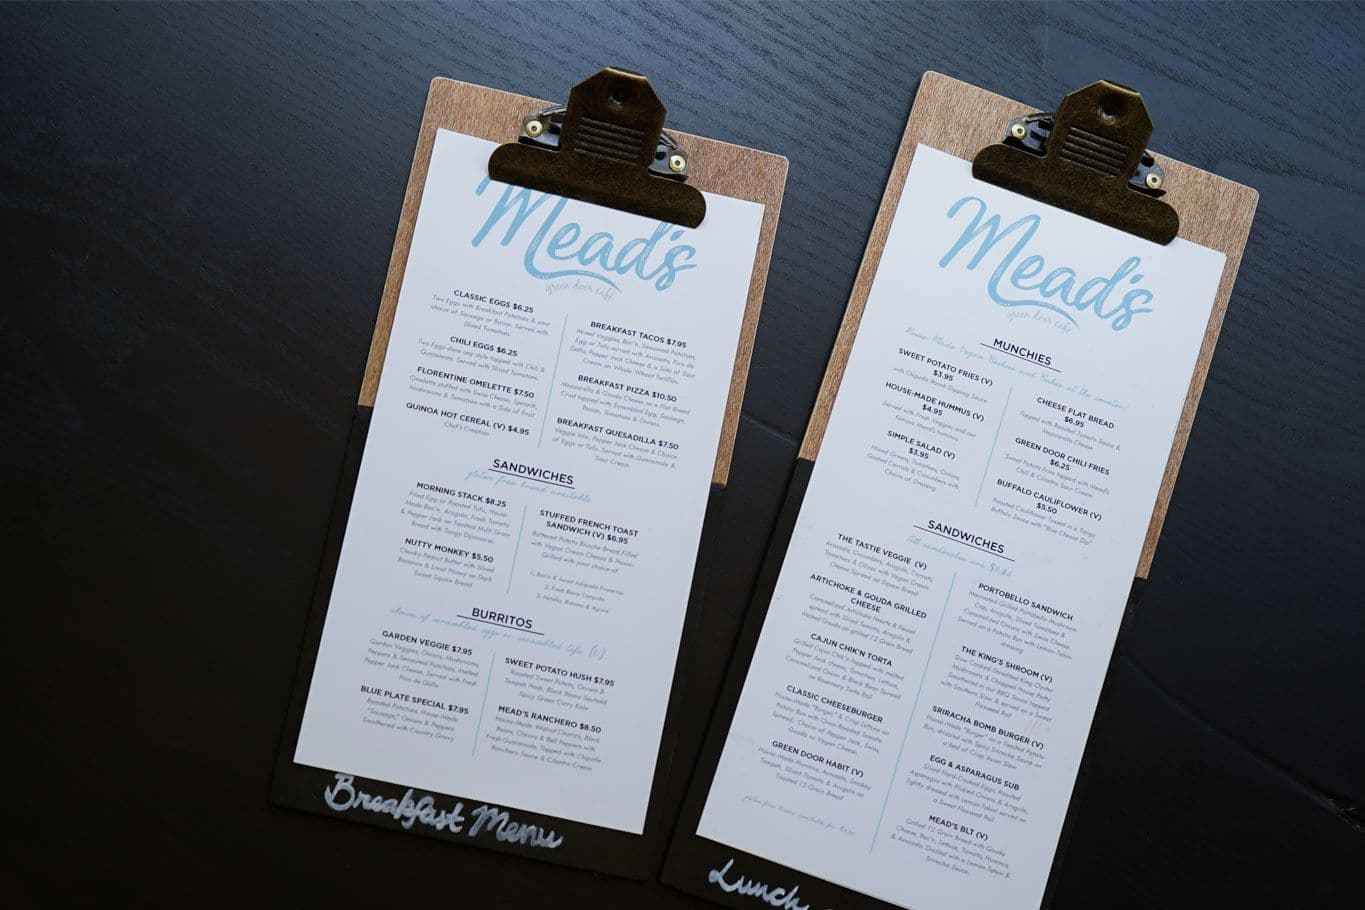 Mead's
green door cafe
CLASSIC EGGS $6.25
Two Eggs with Breakfast Potatoes & your
choice of Sausage or Bacon. Served with
Sliced Tomatoes.
CHILI EGGS $6.25
Two Eggs done any style topped with Chili &
Guacamole. Served with Sliced Tomatoes.
FLORENTINE OMELETTE $7.50
Omelette stuffed with Swiss Cheese, Spinach,
Mushrooms & Tomatoes with a Side of Fruit
QUINOA HOT CEREAL (V) $4.95
Chef's Creation
BREAKFAST TACOS $7.95
Mixed Veggies, Bac'n, Seasoned Potatoes,
Egg or Tofu, served with Avocado, Pico de
Gallo, Pepper Jack Cheese & a Side of Sour
Cream on Whole Wheat Tortillas.
BREAKFAST PIZZA $10.50
Mozzarella & Gouda Cheese on a Flat Bread
Crust topped with Scrambled Egg, Sausage,
Bacon, Tomatoes & Onions.
BREAKFAST QUESADILLA $7.50
Veggie Mix, Pepper Jack Cheese & Choice
of Eggs or Tofu. Served with Guacamole &
Sour Cream
SANDWICHES
gluten free bread available
MORNING STACK $8.25
Fried Egg or Roasted Tofu, House-
Made Bac'n, Arugula, Fresh Tomato
& Pepper Jack on Toasted Multi Grain
Bread with Tangy Dijonnaise.
NUTTY MONKEY $5.50
Chunky Peanut Butter with Sliced
Bananas & Local Honey on Dark
Sweet Squaw Bread
STUFFED FRENCH TOAST
SANDWICH (V) $6.95
Battered Potato Brioche Bread Filled
with Vegan Cream Cheese & Panini-
Grilled with your choice of:
1. Bac'n & Sweet Jalapeño Preserves
2. Fresh Berry Compote
3. Nutella, Banana & Agave
BURRITOS
choice of scrambled eggs or scrambled tofu (v)
GARDEN VEGGIE $7.95
Garden Veggies, Onions, Mushrooms,
Peppers & Seasoned Potatoes, Melted
Pepper Jack Cheese, Served with Fresh
Pico de Gallo
BLUE PLATE SPECIAL $7.95
Roasted Potatoes, House-Made
"Sausage," Onions & Peppers
Smothered with Country Gravy
SWEET POTATO HUSH $7.95
Roasted Sweet Potato, Onions &
Tempeh Hash, Black Beans Sautéed
Spicy Green Curry Kale
MEAD'S RANCHERO $8.50
House-Made Walnut Chorizo, Black
Beans, Onions & Bell Peppers with
Fresh Guacamole, Topped with Chipotle
Ranchero Sauce & Cilantro Cream
Breakfast Menu
Mead's
green door cafe
MUNCHIES
House Made Vegan Cookies and Cakes at the counter!
SWEET POTATO FRIES (V)
$3.95
with Chipotle Ranch Dipping Sauce
HOUSE-MADE HUMMUS (V)
$4.95
Served with Fresh Veggies and our
famous Mead's hummus
SIMPLE SALAD (V)
$3.95
Mixed Greens, Tomatoes, Onions,
Grated Carrots & Cucumbers with
Choice of Dressing
CHEESE FLAT BREAD
$6.95
Topped with Roasted Tomato Sauce &
Mozzarella Cheese
GREEN DOOR CHILI FRIES
$6.25
Sweet Potato Fries topped with Mead's
Chili & Cilantro Sour Cream
BUFFALO CAULIFLOWER (V)
$5.50
Roasted Cauliflower Tossed in a Tangy
Buffalo Sauce with "Blue Cheese Dip"
SANDWICHES
All sandwiches are $9.25
THE TASTIE VEGGIE (V)
Avocado, Cucumbers, Arugula, Carrots,
Tomatoes & Olives with Vegan Cream
Cheese Spread on Squaw Bread
ARTICHOKE & GOUDA GRILLED
CHEESE
Caramelized Artichoke Hearts & Fennel
spread with Sliced Tomato, Arugula &
Melted Gouda on grilled 12 Grain Bread
CAJUN CHIK'N TORTA
Grilled Cajun Chik'n topped with melted
Pepper Jack cheese, Tomatoes, Lettuce,
Caramelized Onion & Black Bean Spread
on Rosemary Torta Roll
CLASSIC CHEESEBURGER
House-Made "Burger" & Crisp Lettuce on
Potato Bun with Oven-Roasted Tomato
Spread, Choice of Pepper Jack, Swiss,
Gouda or Vegan Cheese.
GREEN DOOR HABIT (V)
House-Made Hummus, Avocado, Smokey
Tempeh, Sliced Tomato & Arugula on
Toasted 12 Grain Bread
PORTOBELLO SANDWICH
Marinated Grilled Portobello Mushroom
Cap, Arugula, Sliced Tomatoes &
Caramelized Onions with Swiss Cheese,
Served on a Potato Bun with Lemon-Tahini
dressing
THE KING'S SHROOM (V)
Slow Cooked Shredded King Oyster
Mushrooms & Chickened House Patty
Smothered in our BBQ Sauce topped
with Southern Slaw & served on a Sweet
Flaxseed Roll
SRIRACHA BOMB BURGER (V)
House-Made "Burger" on a Toasted Potato
Bun, drizzled with Spicy Sriracha Sauce &
a bed of Crisp Asian Slaw
EGG & ASPARAGUS SUB
Sliced Hard-Cooked Eggs, Roasted
Asparagus with Pickled Onions & Arugula,
lightly dressed with Lemon-Tahini served on
a Sweet Flaxseed Roll
MEAD'S BLT (V)
Grilled 12 Grain Bread with Gouda
Cheese, Bac'n, Lettuce, Tomato, Hummus,
& Avocado, Dizzled with a Lemon-Tahini &
Sriracha Sauce
gluten free bread available for
Lunch